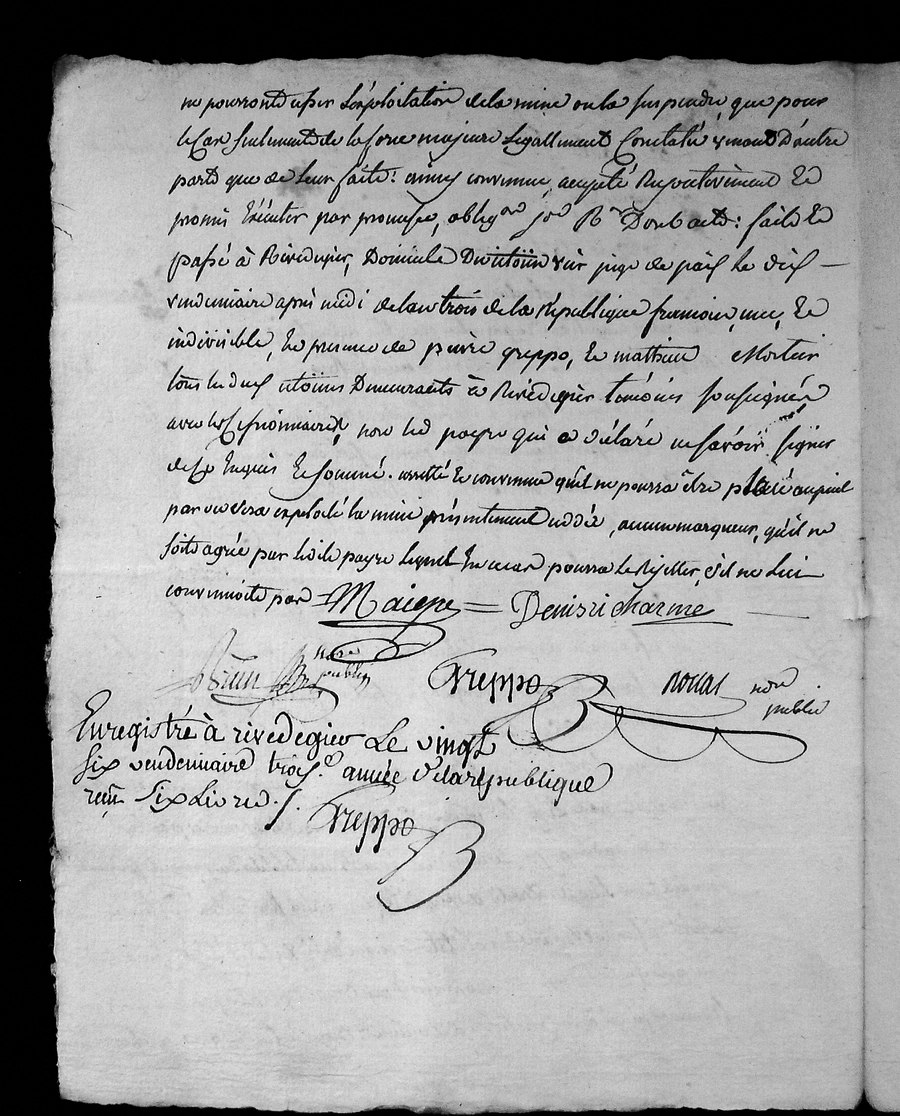 ne pourront cesser l'exploitation de la mine ou la suspendre, que pour
le Cas seulement de la force majeure Legallement Constaté venant D'autre
part que de Leur faite: ainsy convenu, accepté Respectivement Et
promis Exécuter par promesse, oblig.on
passé à Rivedegier, Domicile Du Citoïen juge de paix le dix
vendemiaire après midi de l'an trois de la République francoise, une, Et
indivisible, En presence de pierre greppo, Et mathieu
tous les deux citoïens Demeurants à Rivedegier temoins soussignés
avec les Cessionnaires, non led payre qui a déclaré ne savoir signer
de ce Enquis Et sommé. arretté Et convenu qu'il ne pourra être placé au puit
par ou sera exploité la mine présentement cédée, aucun marqueur, qu'il ne
soit agrée par ledit payre Lequel En ce cas pourra Le Rejetter, s'il ne Lui
convenoit pas Denis richarme
nore
public
Greppo rouat nore
public
Enregistré à rivedegier Le vingt
six vendemiaire trois.e année de la république
reçu six Livres
Greppo